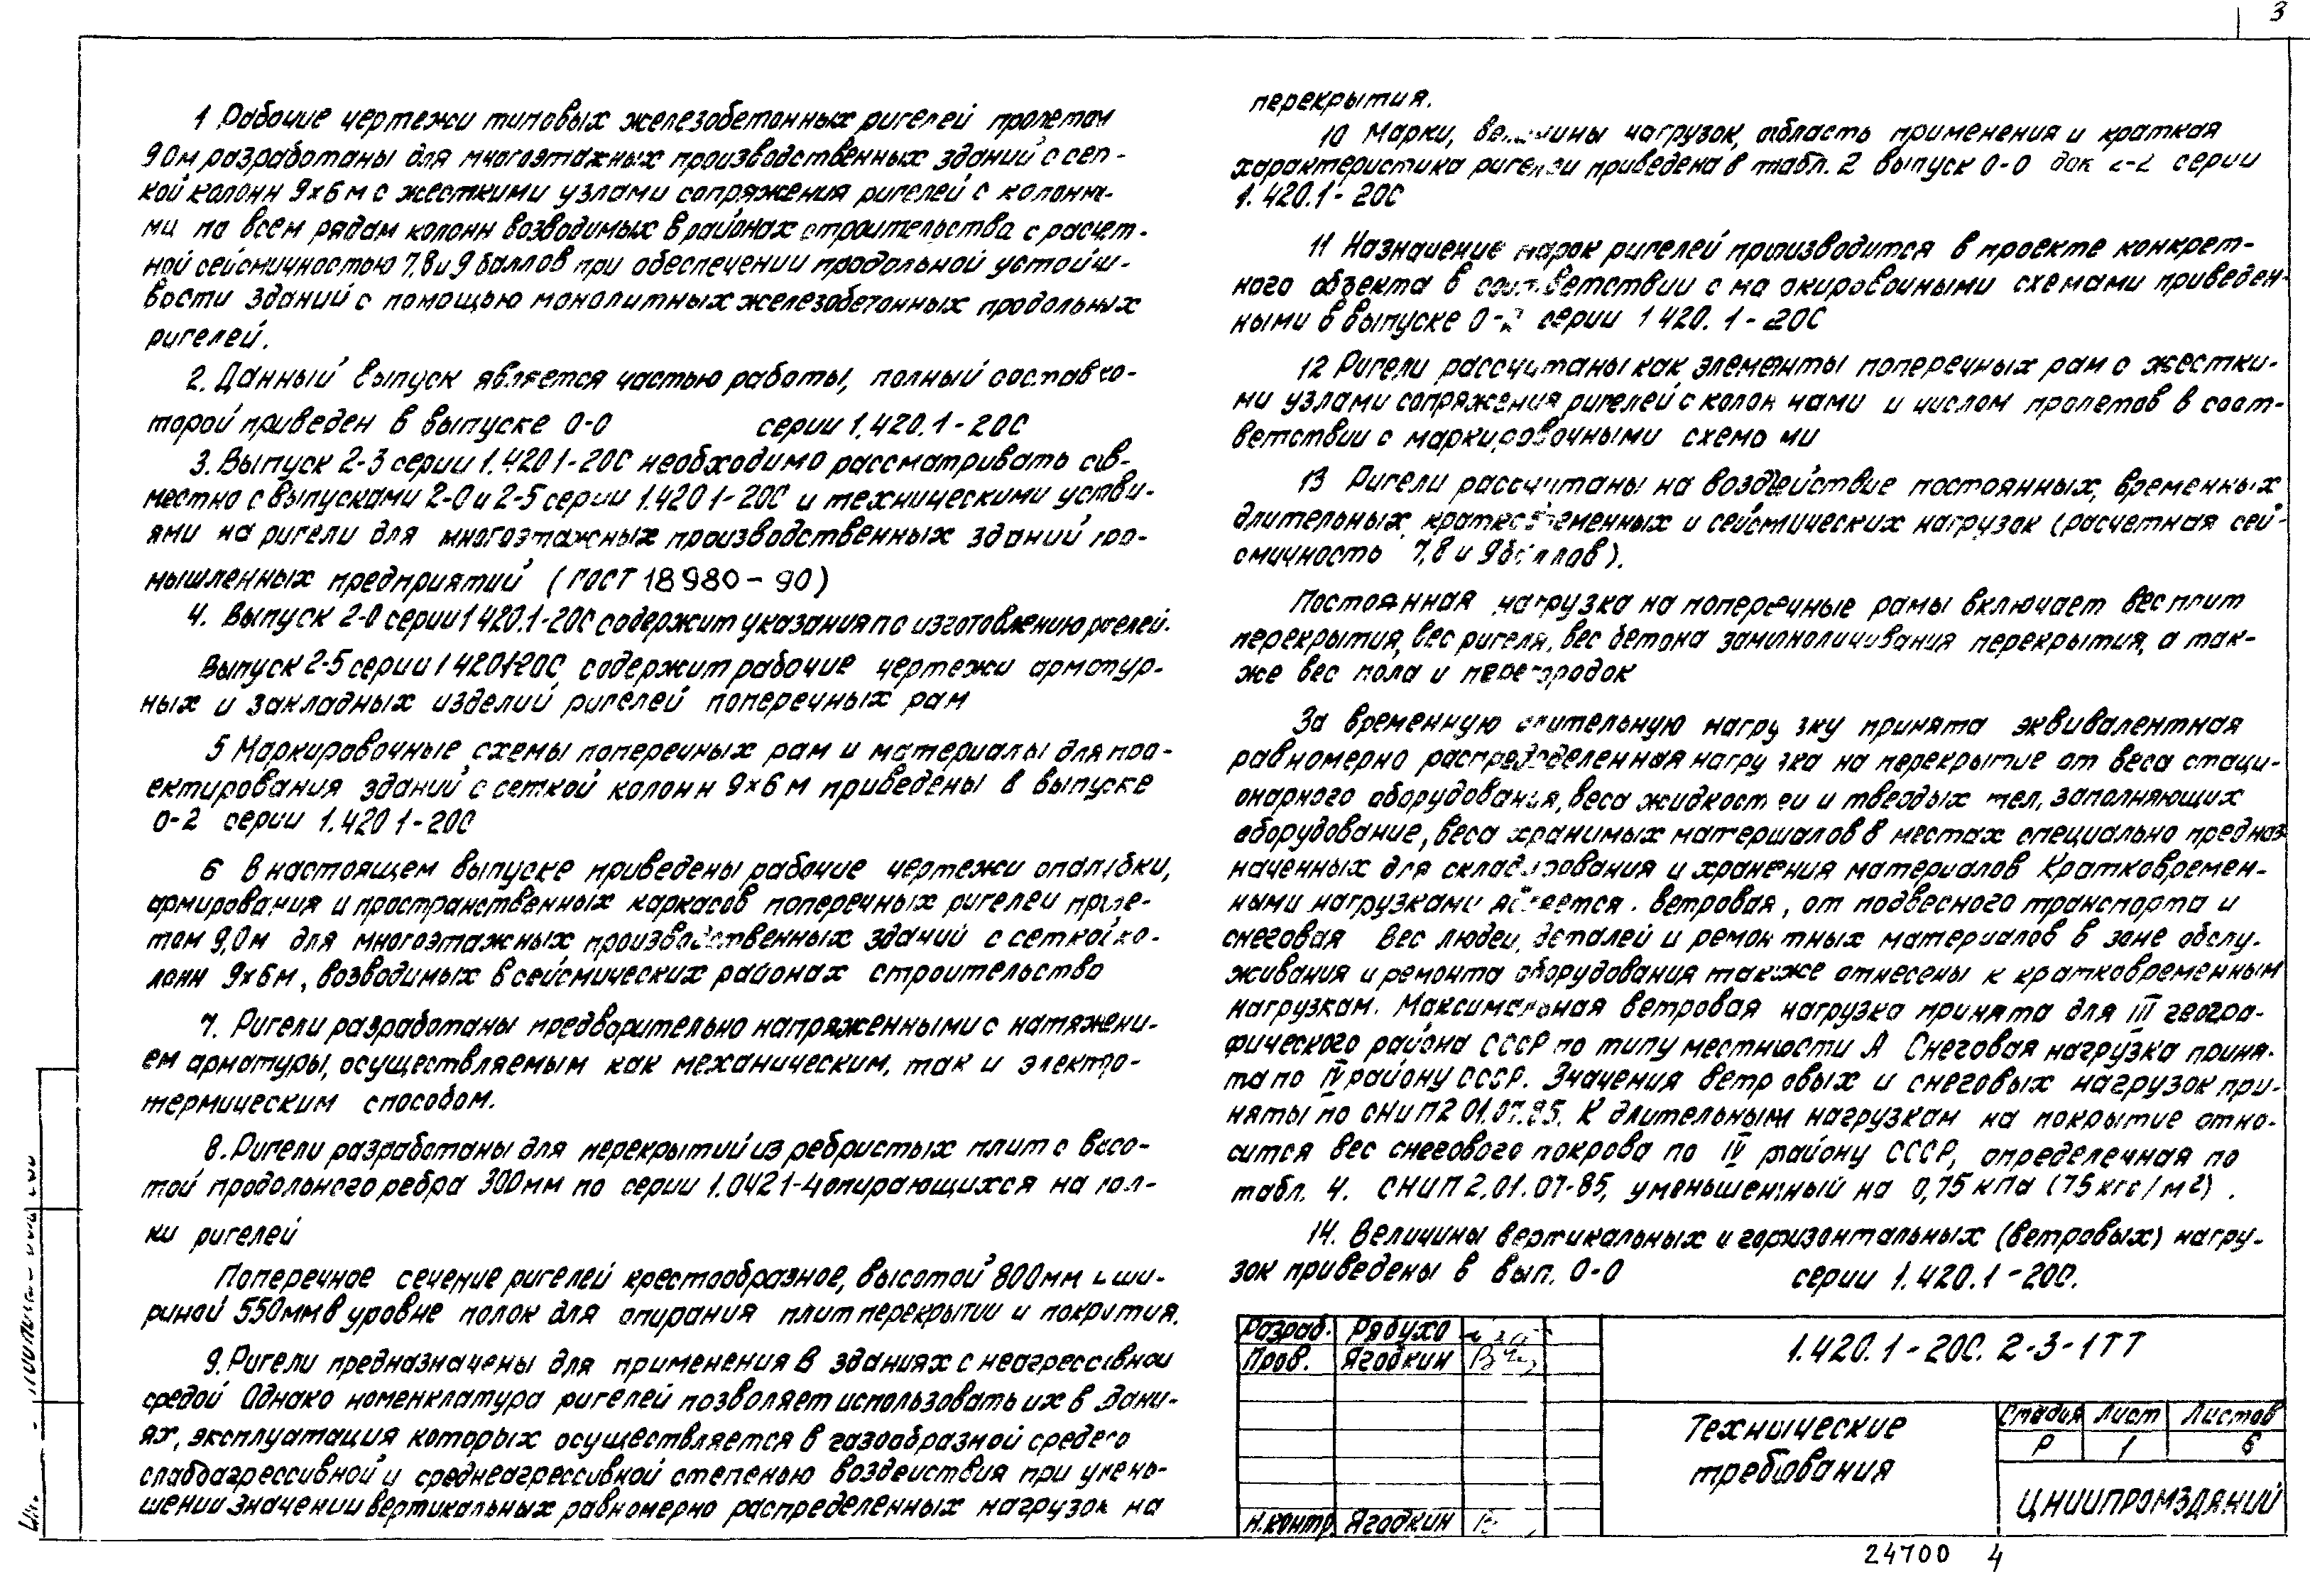 3
1 Рабочие чертежи типовых железобетонных ригелей пролетом
9 0м разработаны для многоэтажных производственных зданий с сет-
кой колонн 9х6 м с жесткими узлами сопряжения ригелей с колонна-
ми по всем рядам колонн возводимых в районах строительства с расчет-
ной сейсмичностью 7,8 и 9 баллов при обеспечении продольной устойчи-
вости зданий с помощью монолитных железобетонных продольных
ригелей.
2. Данный выпуск является частью работы, полный состав ко-
торой приведен в выпуске 0-0 серии 1.420.1-20С
3. Выпуск 2-3 серии 1.420 1-20С необходимо рассматривать сов-
местно с выпусками 2-0 и 2-5 серии 1.420 1-20С и техническими услови-
ями на ригели для многоэтажных производственных зданий про-
мышленных предприятий (ГОСТ 18980-90)
4. Выпуск 2-0 серии 1 420.1-20С содержит указания по изготовлению ригелей.
Выпуск 2-5 серии 1 420 1-20С содержит рабочие чертежи арматур-
ных и закладных изделий ригелей поперечных рам
5 Маркировочные схемы поперечных рам и материалы для про-
ектирования зданий с сеткой колонн 9х6 м приведены в выпуске
0-2 серии 1.420 1-20С
6 В настоящем выпуске приведены рабочие чертежи опалубки,
армирования и пространственных каркасов поперечных ригелей проле-
том 9,0м для многоэтажных производственных зданий с сеткой ко-
лонн 9х6м, возводимых в сейсмических районах строительства
7. Ригели разработаны предварительно напряженными с натяжени-
ем арматуры, осуществляемым как механическим, так и электро-
термическим способом.
8. Ригели разработаны для перекрытий из ребристых плит с высо-
той продольного ребра 300мм по серии 1.042 1-4 опирающихся на пол-
ки ригелей
Поперечное сечение ригелей крестообразное, высотой 800мм и ши-
риной 550мм в уровне полок для опирания плит перекрытии и покрытия.
9. Ригели предназначены для применения в зданиях с неагрессивной
средой Однако номенклатура ригелей позволяет использовать их в здани-
ях, эксплуатация которых осуществляется в газообразной среде со
слабоагрессивной и среднеагрессивной степенью воздействия при умень-
шении значений вертикальных равномерно распределенных нагрузок на
перекрытия.
10 Марки, величины нагрузок, область применения и краткая
характеристика ригелей приведена в табл. 2 выпуск 0-0 док 2-2 серии
1.420.1-20С
11 Назначение марок ригелей производится в проекте конкрет-
ного объекта в соответствии с маркировочными схемами приведен-
ными в выпуске 0-2 серии 1 420.1-20С
12 Ригели рассчитаны как элементы поперечных рам с жестки-
ми узлами сопряжения ригелей с колоннами и числом пролетов в соот-
ветствии с маркировочными схемами
13 Ригели рассчитаны на воздействие постоянных, временных
длительных, кратковременных и сейсмических нагрузок (расчетная сей-
смичность 7,8 и 9 баллов).
Постоянная нагрузка на поперечные рамы включает вес плит
перекрытия, вес ригеля, вес бетона замоноличивания перекрытия, а так-
же вес пола и перегородок
За временную длительную нагрузку принята эквивалентная
равномерно распределенная нагрузка на перекрытие от веса стаци-
онарного оборудования, веса жидкостей и твердых тел, заполняющих
оборудование, веса хранимых материалов в местах специально предназ
наченных для складирования и хранения материалов Кратковремен-
ными нагрузками является: ветровая, от подвесного транспорта и
снеговая Вес людей, деталей и ремонтных материалов в зоне обслу-
живания и ремонта оборудования также отнесены к кратковременным
нагрузкам. Максимальная ветровая нагрузка принята для III геогра-
фического района СССР по типу местности А Снеговая нагрузка приня-
та по IV району СССР. Значения ветровых и снеговых нагрузок при-
няты по СНиП 2 01.07.85. К длительным нагрузкам на покрытие отно-
сится вес снегового покрова по IV району СССР, определенная по
табл. 4. СНИП 2.01.07-85, уменьшенный на 0,75 кПа (75 кгс/м2).
14. Величины вертикальных и горизонтальных (ветровых) нагру-
зок приведены в вып. 0-0 серии 1.420.1-20С.
Разраб. Рябухо
Пров. Ягодкин
Н.контр. Ягодкин
1.420.1-20С. 2-3-1ТТ
Технические
требования
Стадия Лист Листов
Р 1 6
ЦНИИПРОМЗДАНИЙ
24700 4